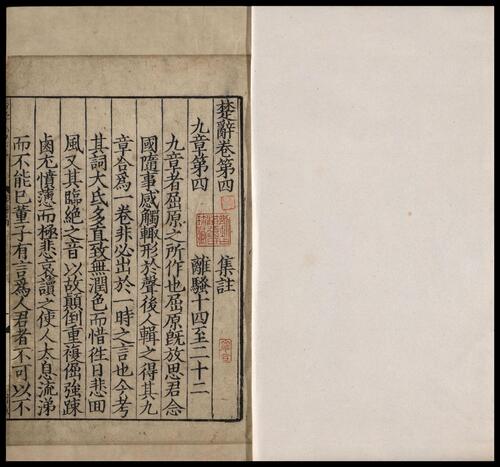 楚辭卷第四 集註
九章第四 離騷十四至二十二
九章者屈原之所作也屈原旣放思君念
國隨事感觸輒形於聲後人輯之得其九
章合爲一卷非必出於一時之言也今考
其詞大氐多直致無潤色而惜徃日悲回
風又其臨絶之音以故顛倒重複倔強踈
鹵尤憤懣而極悲哀讀之使人太息流涕
而不能已董子有言爲人君者不可以不